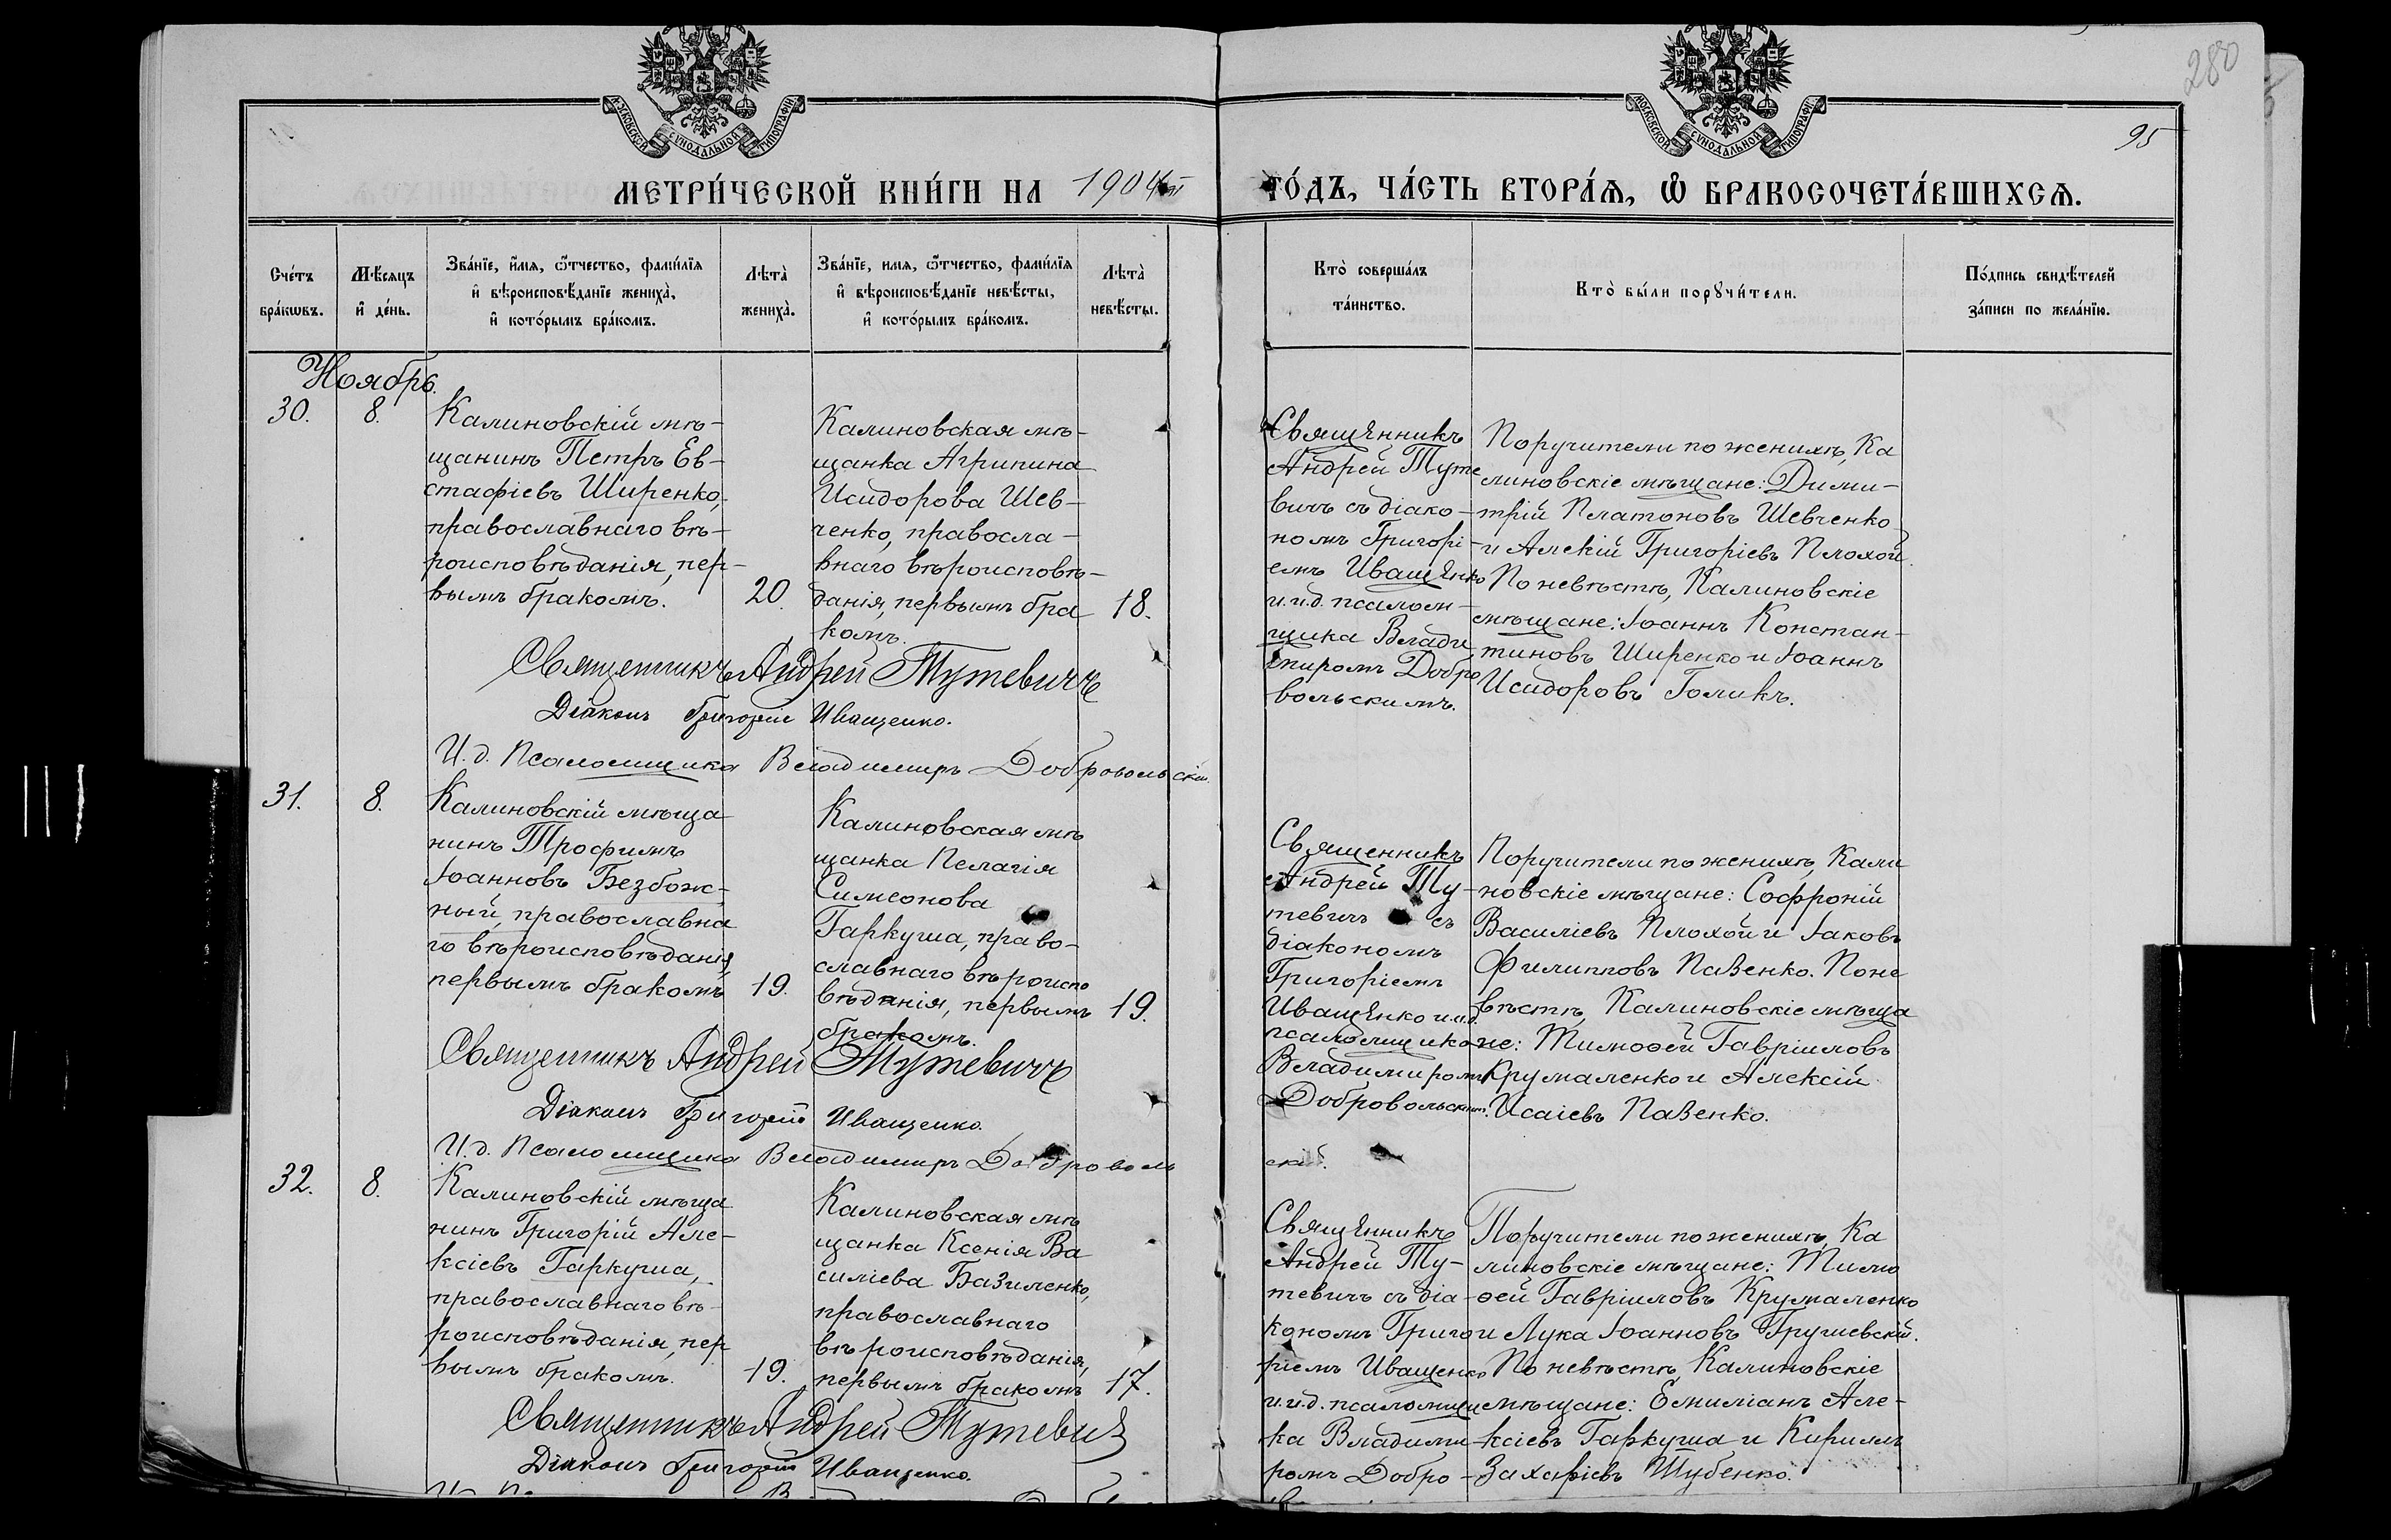 280
95
МОСКОВСКОЙ СѴНОДАЛЬНОЙ ТИПОГРАФІИ
МОСКОВСКОЙ СѴНОДАЛЬНОЙ ТИПОГРАФІИ
МЕТРИ́ЧЕСКОЙ КНИ́ГИ НА 1904й
ГО́ДЪ, ЧА́СТЬ ВТОРА́Ѧ, Ѿ БРАКОСОЧЕТА́ВШИХСѦ.
Сче́тъ
бра́кѡвъ.
Мѣ́сяцъ
и҆ де́нь.
Зва́нїе, и҆́мѧ, ѻ҆́тчество, фами́лїѧ
и҆ вѣроисповѣ́данїе жениха̀,
и҆ кото́рымъ бра́комъ.
Лѣта̀
жениха̀.
Зва́нїе, имѧ, ѻ҆́тчество, фами́лїѧ
и҆ вѣроисповѣ́данїе невѣ́сты,
и҆ кото́рымъ бра́комъ.
Лѣта̀
невѣ́сты.
Кто̀ соверша́лъ
та́инство.
Кто̀ бы́ли порꙋчи́тели.
По́дпись свидѣ́телей
за́писи по жела́нїю.
Ноябрь.
30.
8.
Калиновскій мѣ-
щанинъ Петръ Ев-
стафіевъ Ширенко,
православнаго вѣ-
роисповѣданія, пер-
вымъ бракомъ.
20.
Калиновская мѣ-
щанка Агрипина
Исидорова Шев-
ченко, правосла-
внаго вѣроисповѣ-
данія, первымъ бра
комъ.
18.
Священникъ
Андрей Туте
вичъ съ діако-
номъ Григорі-
емъ Иващенко
и.и.д. псалом-
щика Влади
миромъ Добро
вольскимъ.
Поручители по женихѣ, Ка
линовскіе мѣщане: Дими-
трій Платоновъ Шевченко
и Алексій Григоріевъ Плохой.
По невѣстѣ, Калиновскіе
мѣщане: Іоаннъ Констан-
тиновъ Ширенко и Іоаннъ
Исидоровъ Голикъ.
Священникъ Андрей Тутевичъ
Діаконъ Григорій Иващенко.
И.д. Псаломщика Владимиръ Добровольскій.
31.
8.
Калиновскій мѣща
нинъ Трофимъ
Іоанновъ Безбож-
ный, православна
го вѣроисповѣданія,
первымъ бракомъ
19.
Калиновская мѣ
щанка Пелагія
Симеонова
Гаркуша, право-
славнаго вѣроиспо
вѣданія, первымъ
бракомъ.
19.
Священникъ
Андрей Ту-
тевичъ съ
діакономъ
Григоріемъ
Иващенко и.и.д.
псаломщика
Владимиромъ
Добровольскимъ.
Поручители по женихѣ, Кали
новскіе мѣщане: Софроній
Василіевъ Плохой и Іаковъ
Филипповъ Павенко. По не
вѣстѣ, Калиновскіе мѣща
не: Тимоѳей Гавріиловъ
Крупаленко и Алексій
Исаіевъ Павенко.
Священникъ Андрей Тутевичъ
Діаконъ Григорій Иващенко.
И.д. Псаломщика Владимиръ Доброволь
скій.
32.
8.
Калиновскій мѣща
нинъ Григорій Але-
ксіевъ Гаркуша,
православнаго вѣ-
роисповѣданія, пер
вымъ бракомъ.
19.
Калиновская мѣ
щанка Ксенія Ва
силіева Базиленко,
православнаго
вѣроисповѣданія,
первымъ бракомъ
17.
Священникъ
Андрей Ту-
тевичъ съ діа-
кономъ Григо
ріемъ Иващенко
и.и.д. псаломщи
ка Владими-
ромъ Добро-
Поручители по женихѣ, Ка
линовскіе мѣщане: Тимо
ѳей Гавріиловъ Крупаленко
и Лука Іоанновъ Грушевскій.
По невѣстѣ, Калиновскіе
мѣщане: Емиліанъ Але-
ксіевъ Гаркуша и Кириллъ
Захаріевъ Шубенко.
Священникъ Андрей Тутевичъ
Діаконъ Григорій Иващенко.